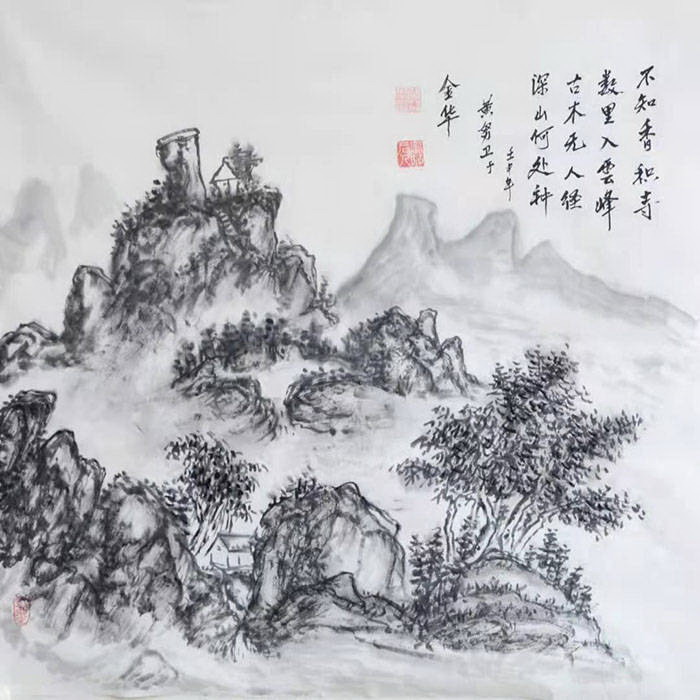 不知香积寺
数里入雲峰
古木无人径
深山何处钟
壬年
黄卫于
金华